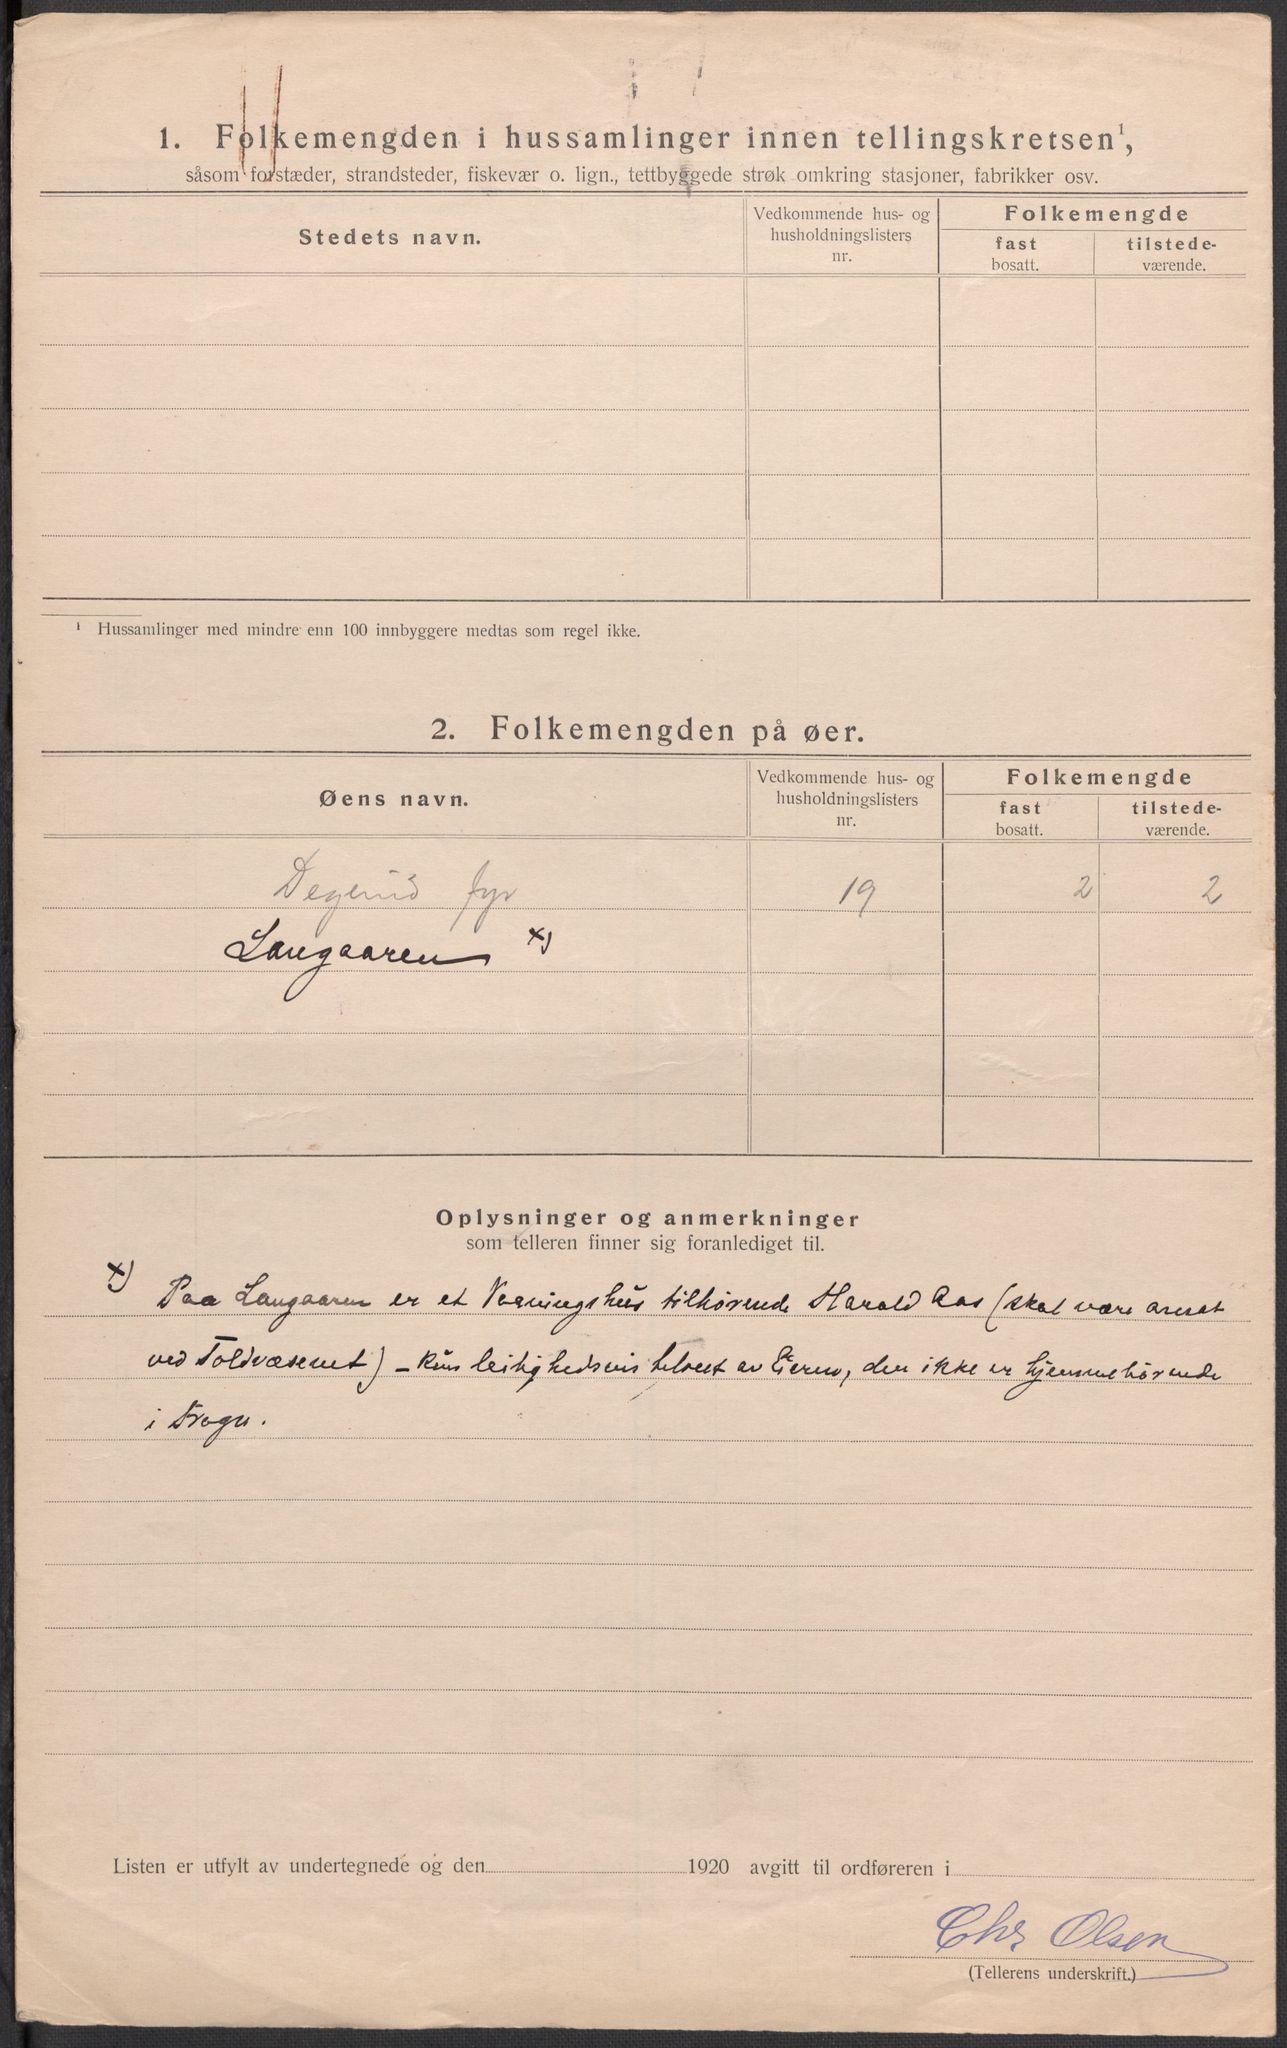 1. Folkemengden i hussamlinger innen tellingskretsen¹,
såsom forstæder, strandsteder, fiskevær o. lign., tettbyggede strøk omkring stasjoner, fabrikker osv.
Stedets navn.
Vedkommende hus- og husholdningslisters nr.
Folkemengde
fast bosatt.
tilstede-værende.
¹ Hussamlinger med mindre enn 100 innbyggere medtas som regel ikke.
2. Folkemengden på øer.
Øens navn.
Vedkommende hus- og husholdningslisters nr.
Folkemengde
fast bosatt.
tilstede-værende.
Degerud fyr 19 2 2
Langaaren x)
Oplysninger og anmerkninger
som telleren finner sig foranlediget til.
x) Paa Langaaren er et Vaaningshus tilhørende Harald Aas (skal være ansat
ved Toldvæsenet) – kun leilighedsvis beboet av Eieren, der ikke er hjemmehørende
i Frogn.
Listen er utfylt av undertegnede og den 1920 avgitt til ordføreren i
Chr Olsen
(Tellerens underskrift.)